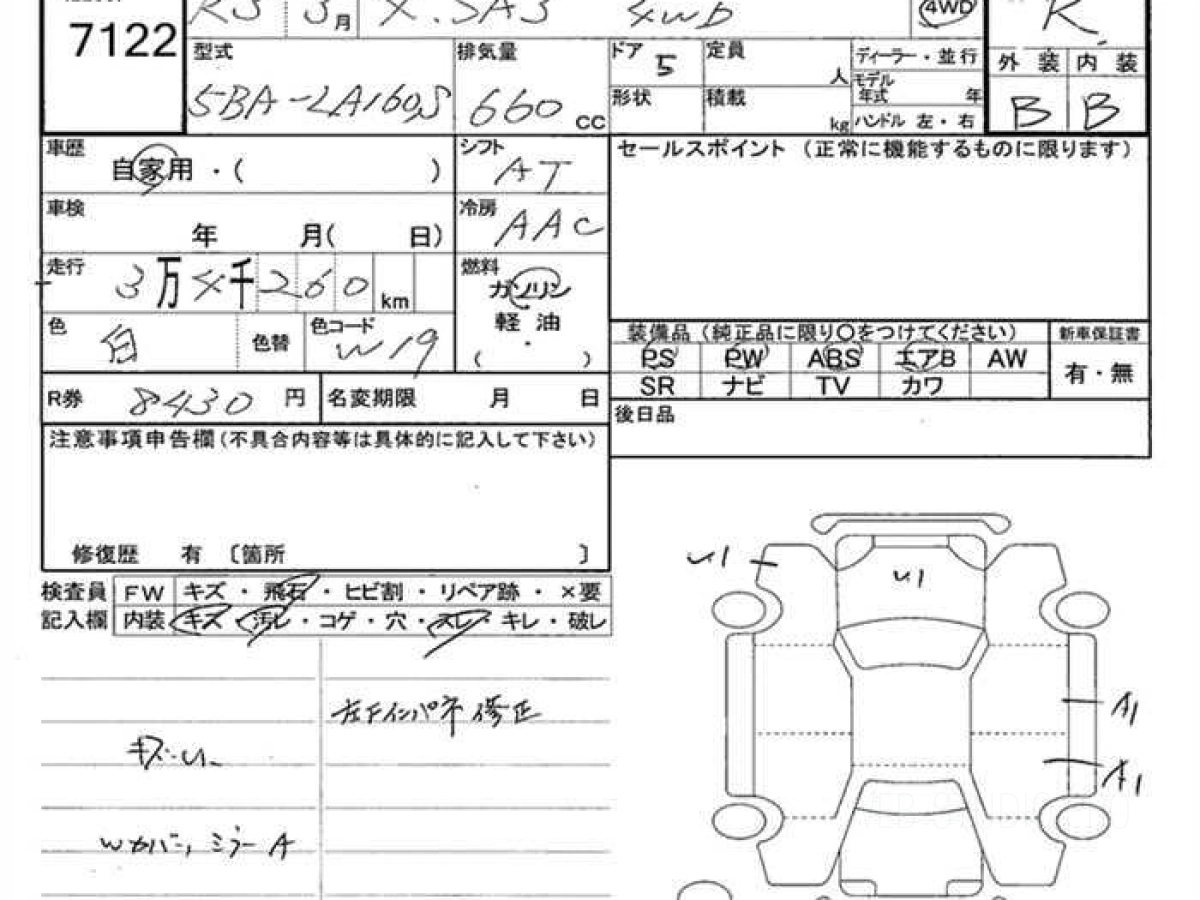 7122
R3 3月 X.SA3 4WD 4WD R
型式 排気量 ドア 5 定員 人 ディーラー・並行 外装 内装
5BA-LA160S 660 cc 形状 積載 kg モデル年式 年 B B
ハンドル 左・右
車歴 自家用・( ) シフト AT セールスポイント (正常に機能するものに限ります)
車検 年 月( 日) 冷房 AAC
走行 3万4千260 km 燃料 ガソリン
軽油
( ・ )
色 白 色替 色コード W19
装備品 (純正品に限り〇をつけてください) 新車保証書
PS PW ABS エアB AW 有・無
SR ナビ TV カワ
R券 8430 円 名変期限 月 日 後日品
注意事項申告欄(不具合内容等は具体的に記入して下さい)
修復歴 有 〔箇所 〕
検査員 FW キズ・飛石・ヒビ割・リペア跡・×要
記入欄 内装 キズ・汚レ・コゲ・穴・スレ・キレ・破レ
U1 U1
左下インパネ修正
A1
キズ・U
A1
Wカバー, ミラーA